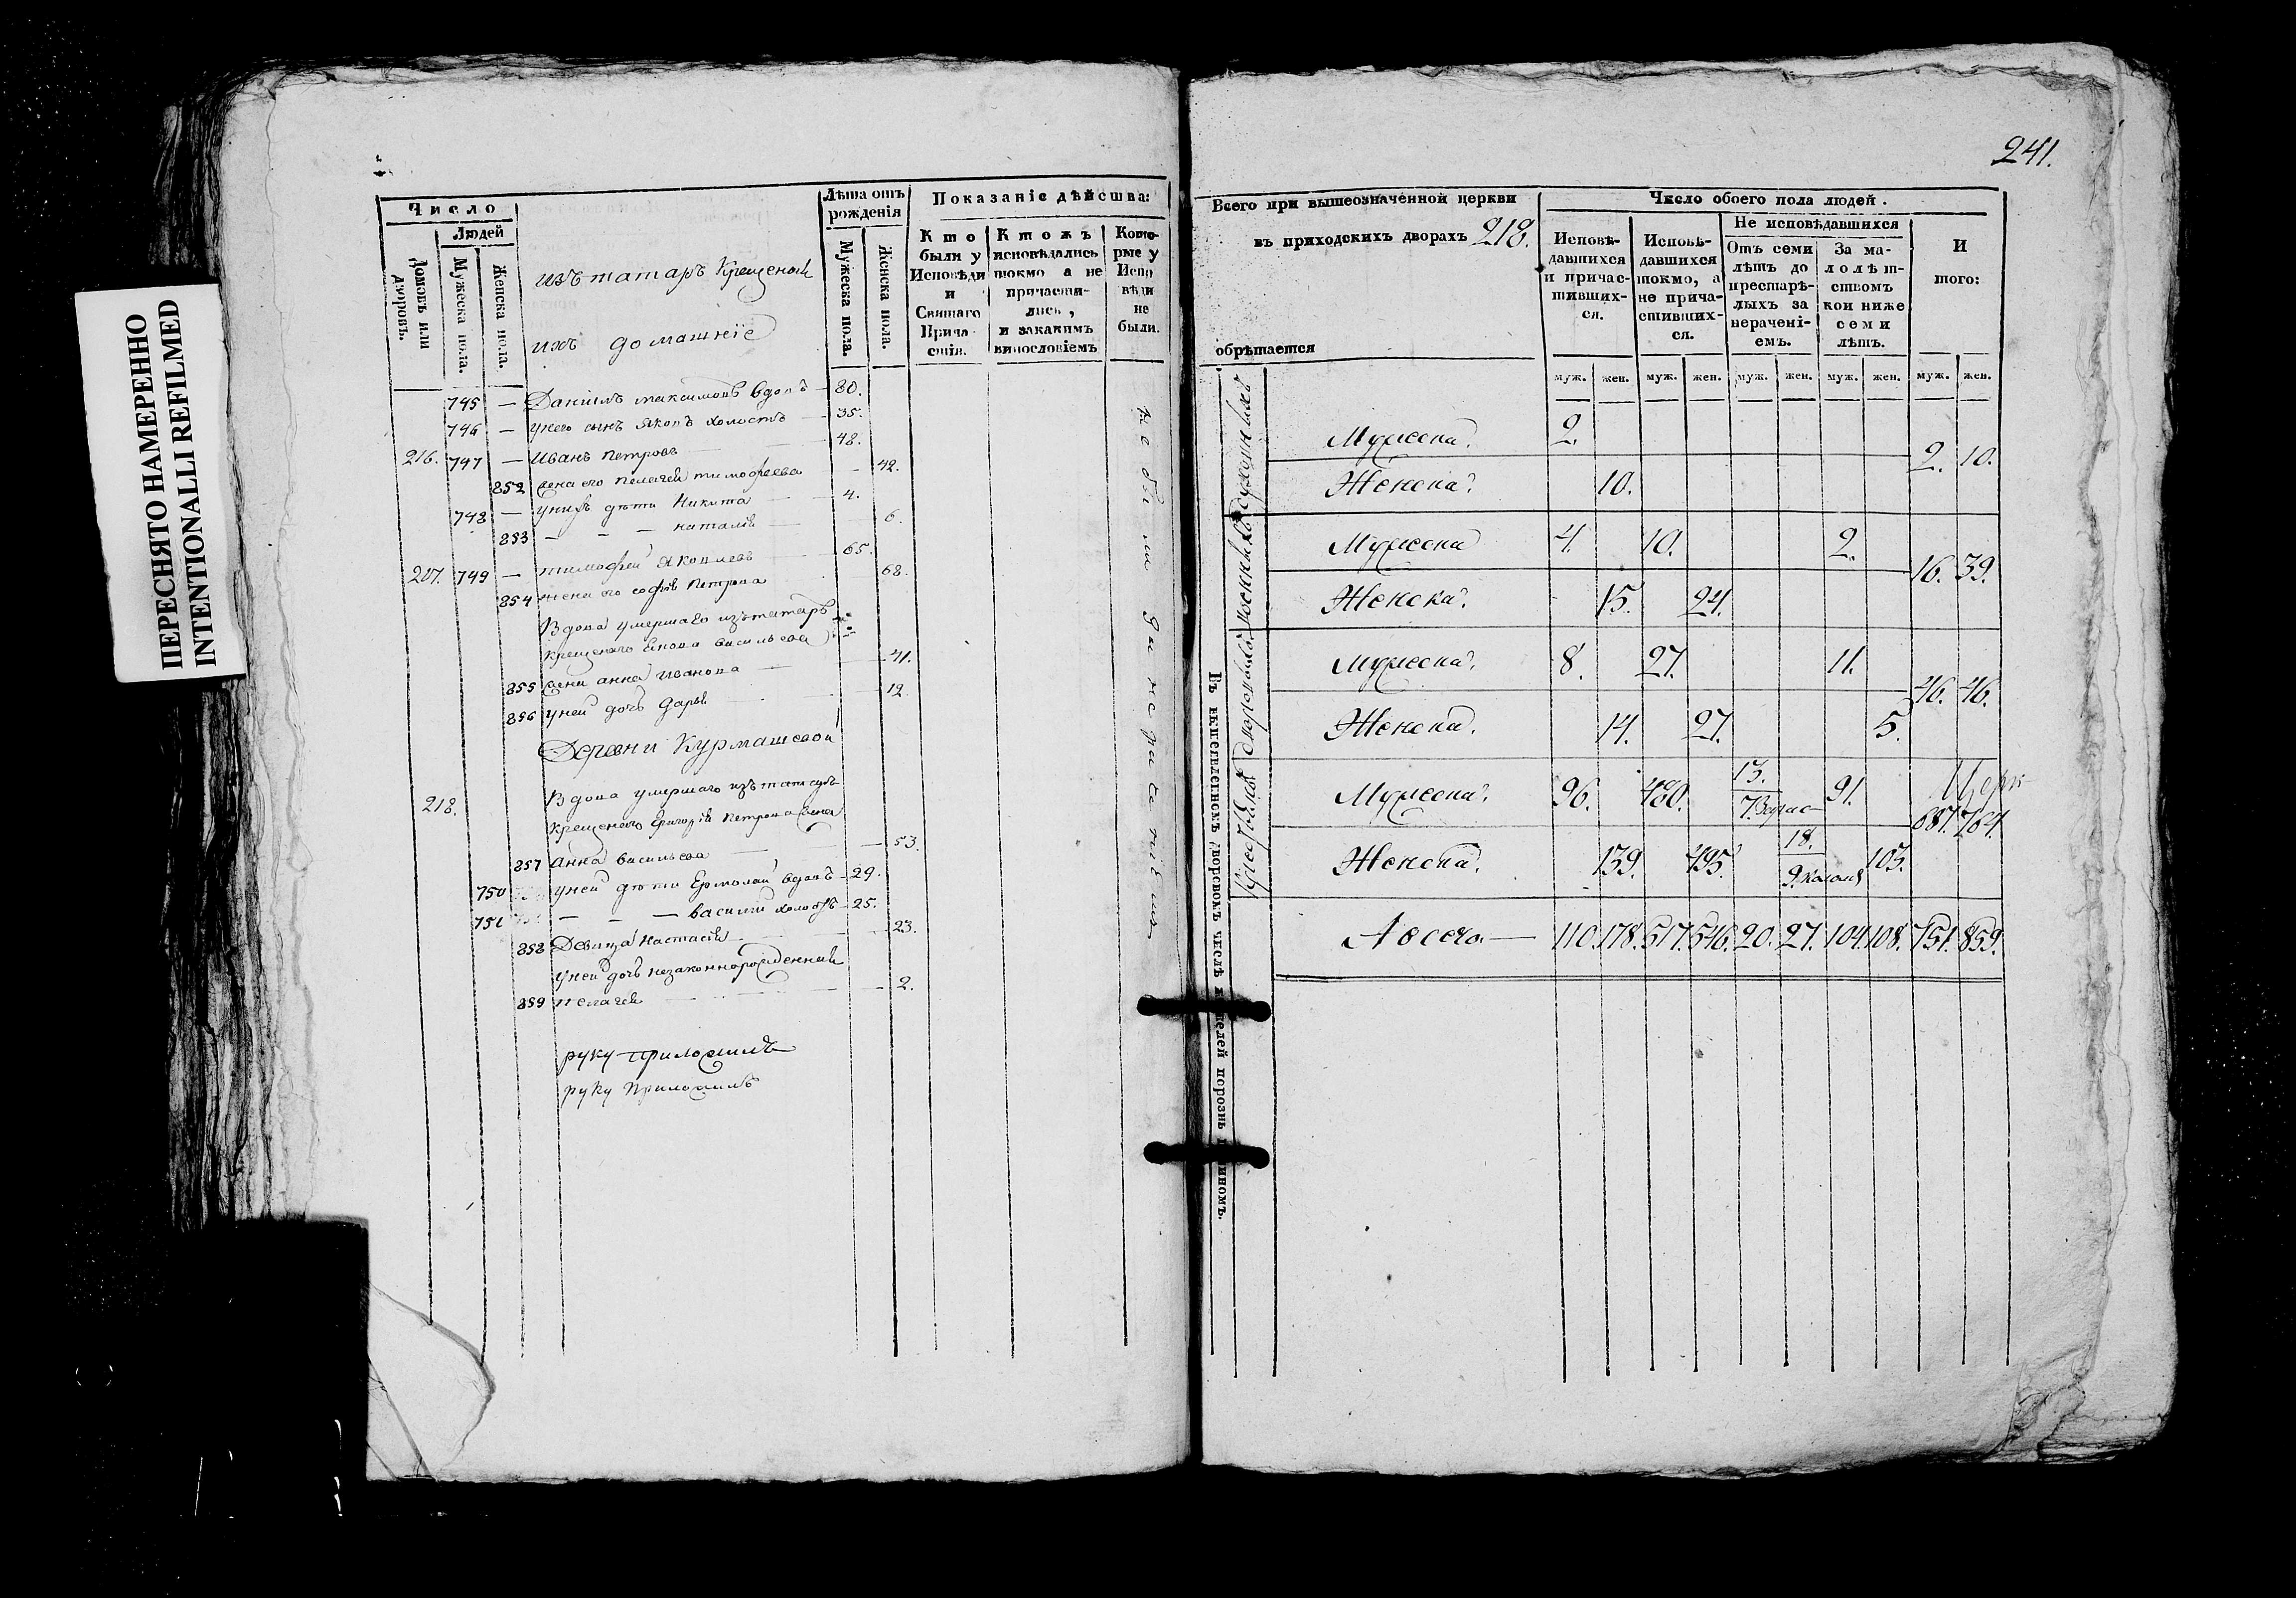 ПЕРЕСНЯТО НАМЕРЕННО
INTENTIONALLI REFILMED
Число
Людей
Домовъ или дворовъ.
Мужеска пола.
Женска пола.
изъ татаръ Крещеныя
ихъ домашнїе
Лѣта отъ рожденія
Мужеска пола.
Женска пола.
Показаніе дѣйства:
Кто были у Исповѣди и Святаго Причастія.
Ктожъ исповѣдались токмо а не причастились, и закакимъ винословіемъ
Которые у Исповѣди не были.
745 — Данилъ максимовъ вдовъ — 80.
746 — унего сынъ Яковъ холостъ — 35.
216. 747 — Иванъ Петровъ 48.
852 жена его пелагея тимофеева — 42.
748 — унихъ дѣти Никита — 4.
853 — — наталія — 6.
217. 749 — тимофеи Яковлевъ — 65.
854 жена его софія Петрова 68.
Вдова умершаго изъ татаръ
крещенаго васильева
855 жена анна иванова — 41.
856 уней дочь дарья 12.
Деревни Курмашевой
218. Вдова умершаго изъ татаръ
крещенаго Григорія Петрова жена
857 анна васильева — 53.
750 уней дѣти Ермолай вдовъ — 29.
751 — — василий холостъ — 25.
858 Девица настасія 23.
уней дочь незаконнорожденная
859 пелагея — 2.
руку приложилъ
руку приложилъ
не были за нерачениемъ
241.
Всего при вышеозначенной церкви
въ приходскихъ дворахъ 218.
обрѣтается
Число обоего пола людей.
Исповѣдавшихся и причастившихся.
Исповѣдавшихся токмо, а не причастившихся.
Не исповѣдавшихся
Отъ семи лѣтъ до престарѣлыхъ за нераченіемъ.
За малолѣтствомъ кои ниже семи лѣтъ.
И того:
муж. жен. муж. жен. муж. жен. муж. жен. муж. жен.
Въ вышеписанномъ дворовомъ числѣ людей порознь чиномъ.
Духовныхъ
Мужеска. 2. 2. 10.
Женска. 10.
Военныхъ
Мужеска 4. 10. 2. 16. 39.
Женска. 15. 24.
Дворовыхъ
Мужеска. 8. 27. 11. 46. 46.
Женска. 14. 27. 5.
Мужеска. 96. 480. 13. 7. 91. 687. 764.
Женска. 139. 495. 18. 9. 103.
А всего — 110. 178. 517. 546. 20. 27. 104. 108. 751. 859.